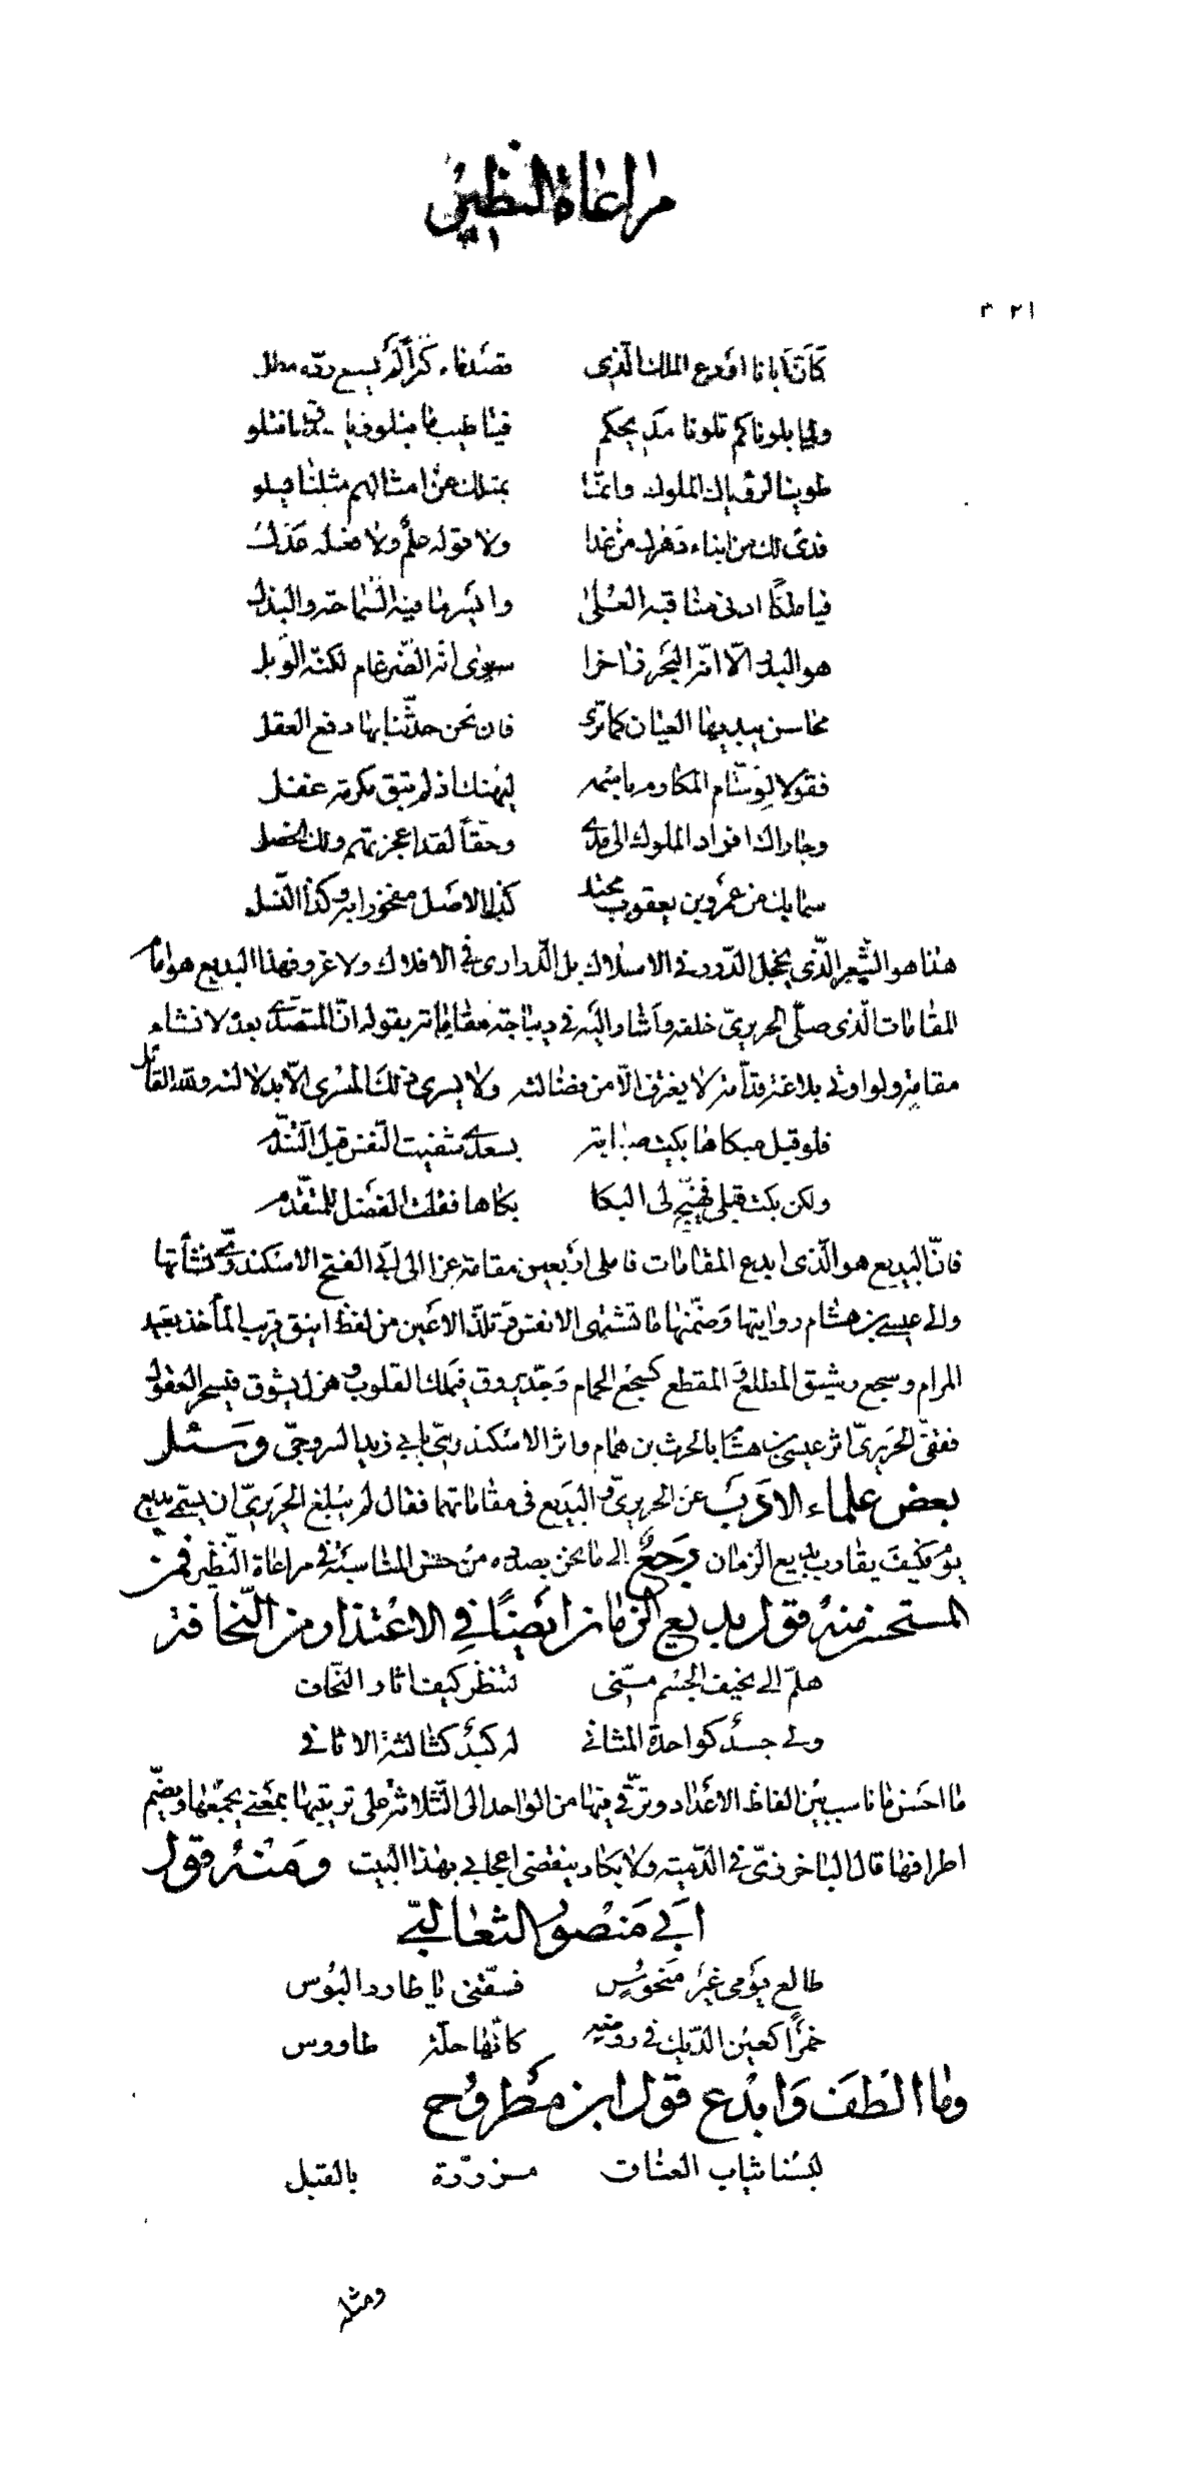 مراعاة النظير
٣٢١
كأنّ أبانا أودع الملك الّذي قصدناه كنزاً لم يسع ردّه مطل
ولمّا بلوناكم تلونا مديحكم فيا طيب ما نبلو ويا حسن ما نتلو
طوينا لرؤياك الملوك وإنّما بمثلك عن أمثالهم مثلنا يسلو
فدى لك من أبناء دهرك من غدا ولا قوله علم ولا فعله عدل
فيا ملكاً أدنى مناقبه العلى وأيسر ما فيه السّماحة والبذل
هو البدر الّا انّه البحر زاخرا سوى انّه الضّرغام لكنّه الوبل
محاسن يبديها العيان كما ترى فان نحن حدّثنا بها دفع العقل
فقولا لوسّام المكارم باسمه ليهنك اذ لم تبق مكرمة غفل
وجاراك افراد الملوك الى مدى وحقّاً لقد اعجزتهم ولك الخصل
سما بك من عمرو بن يعقوب محتد كذا الاصل مفخور به وكذا النّسل
هذا هو الشّعر الّذي يخجل الدّرر في الاسلاك بل الدّراري في الافلاك ولا غرو فهذا البديع هو امام
المقامات الّذي صلّى الحريريّ خلفه وأشار اليه في ديباجة مقاماته بقوله انّ المتصدّى بعده لانشاء
مقامة ولو اوتي بلاغة قدامة لا يغترف الّا من فضالته ولا يسري ذلك المسرى الّا بدلالته ولله القائل
فلو قبل مبكاها بكيت صبابة بسعدى شفيت النّفس قبل التّندّم
ولكن بكت قبلي فهيّج لي البكا بكاها فقلت الفضل للمتقدّم
فانّ البديع هو الّذي ابدع المقامات فاملى اربعين مقامة عزا الى ابي الفتح الاسكندريّ نشأتها
والى عيسى بن هشام روايتها وضمّنها ما تشتهي الانفس وتلذّ الاعين من لفظ انيق قريب المأخذ بعيد
المرام وسجع رشيق المطلع والمقطع كسجع الحمام وجدّ يروق فيملك القلوب وهزل يشوق فيسحر العقول
فقفّى الحريريّ اثر عيسى بن هشام بالحرث بن همام واثر الاسكندريّ بابي زيد السروجيّ وسئل
بعض علماء الادب عن الحريريّ والبديع في مقاماتهما فقال لم يبلغ الحريريّ ان يسمّى بديع
يوم فكيف يقارب بديع الزمان رجع الى ما نحن بصدده من حسن المناسبة في مراعاة النّظير فمن
المستحسن منه قول بديع الزمان ايضاً في الاعتذار من النّحافة
هلمّ الى نحيف الجسم منّي لتنظر كيف اثار النّحاف
ولي جسد كواحدة المثاني له كبد كثالثة الاثافي
ما احسن ما ناسب بين الفاظ الاعداد وترقّى فيها من الواحد الى الثّلاثة على ترتيبها بمعنى يجمعها ويضمّ
اطرافها قال الباخرزيّ في الدّمية ولا يكاد ينقضي اعجابي بهذا البيت ومنه قول
ابي منصور الثعالبيّ
طالع يومي غير منحوس فسقّني يا طارد البؤس
خمراً كعين الدّيك في روضة كأنّها حلّة طاووس
وما الطف وابدع قول ابن مطروح
لبسنا ثياب العناق مزرّرة بالقبل
ومثله